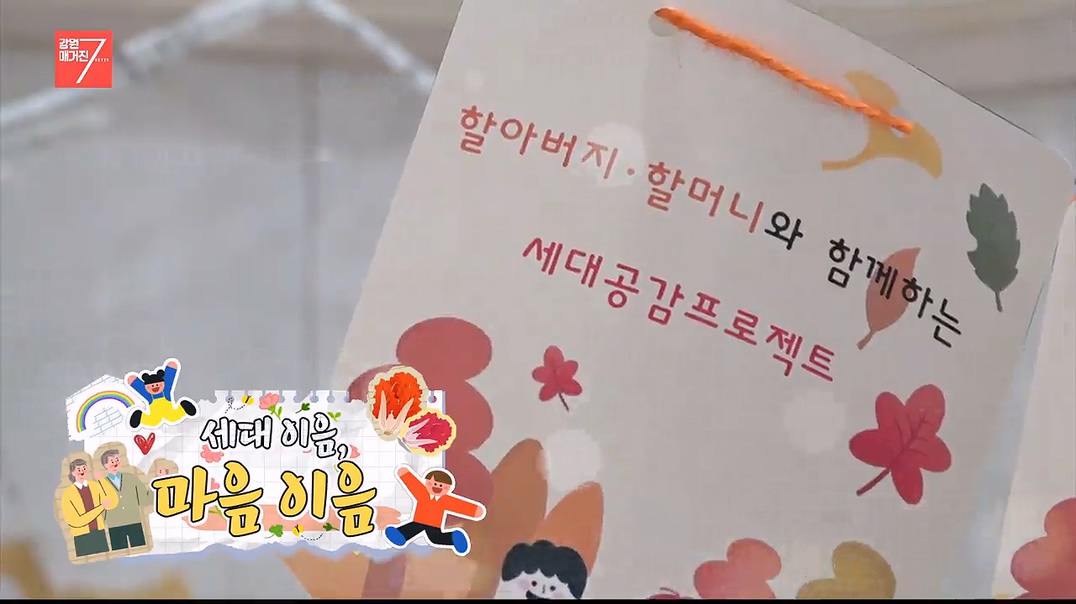 강원
매거진7
할아버지·할머니와 함께하는
세대공감프로젝트
세대 이음,
마음 이음